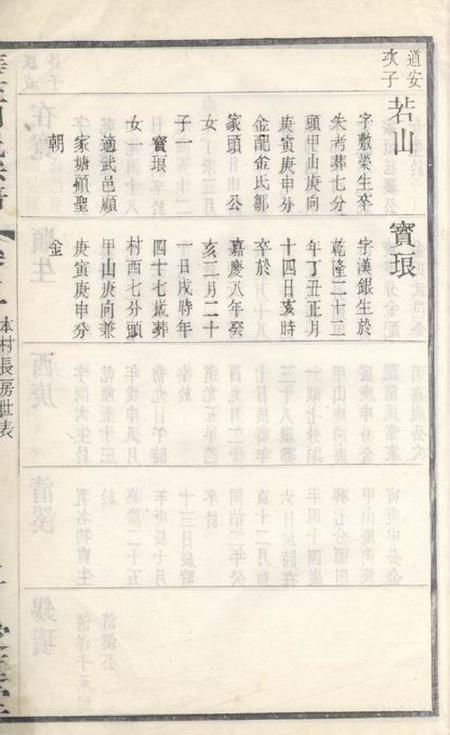 道安
次子
若山
字敷榮生卒
失考葬七分
頭甲山庚向
庚寅庚申分
金配金氏鄒
家頭 公
女
子一 寶琅
女一 適武邑顧
家塘顧聖
朝
寶琅
字漢銀生於
乾隆二十二
年丁丑正月
十四日亥時
卒於
嘉慶八年癸
亥二月二十
一日戌時年
四十七歲葬
村西七分頭
甲山庚向兼
庚寅庚申分
金
本村長房世表